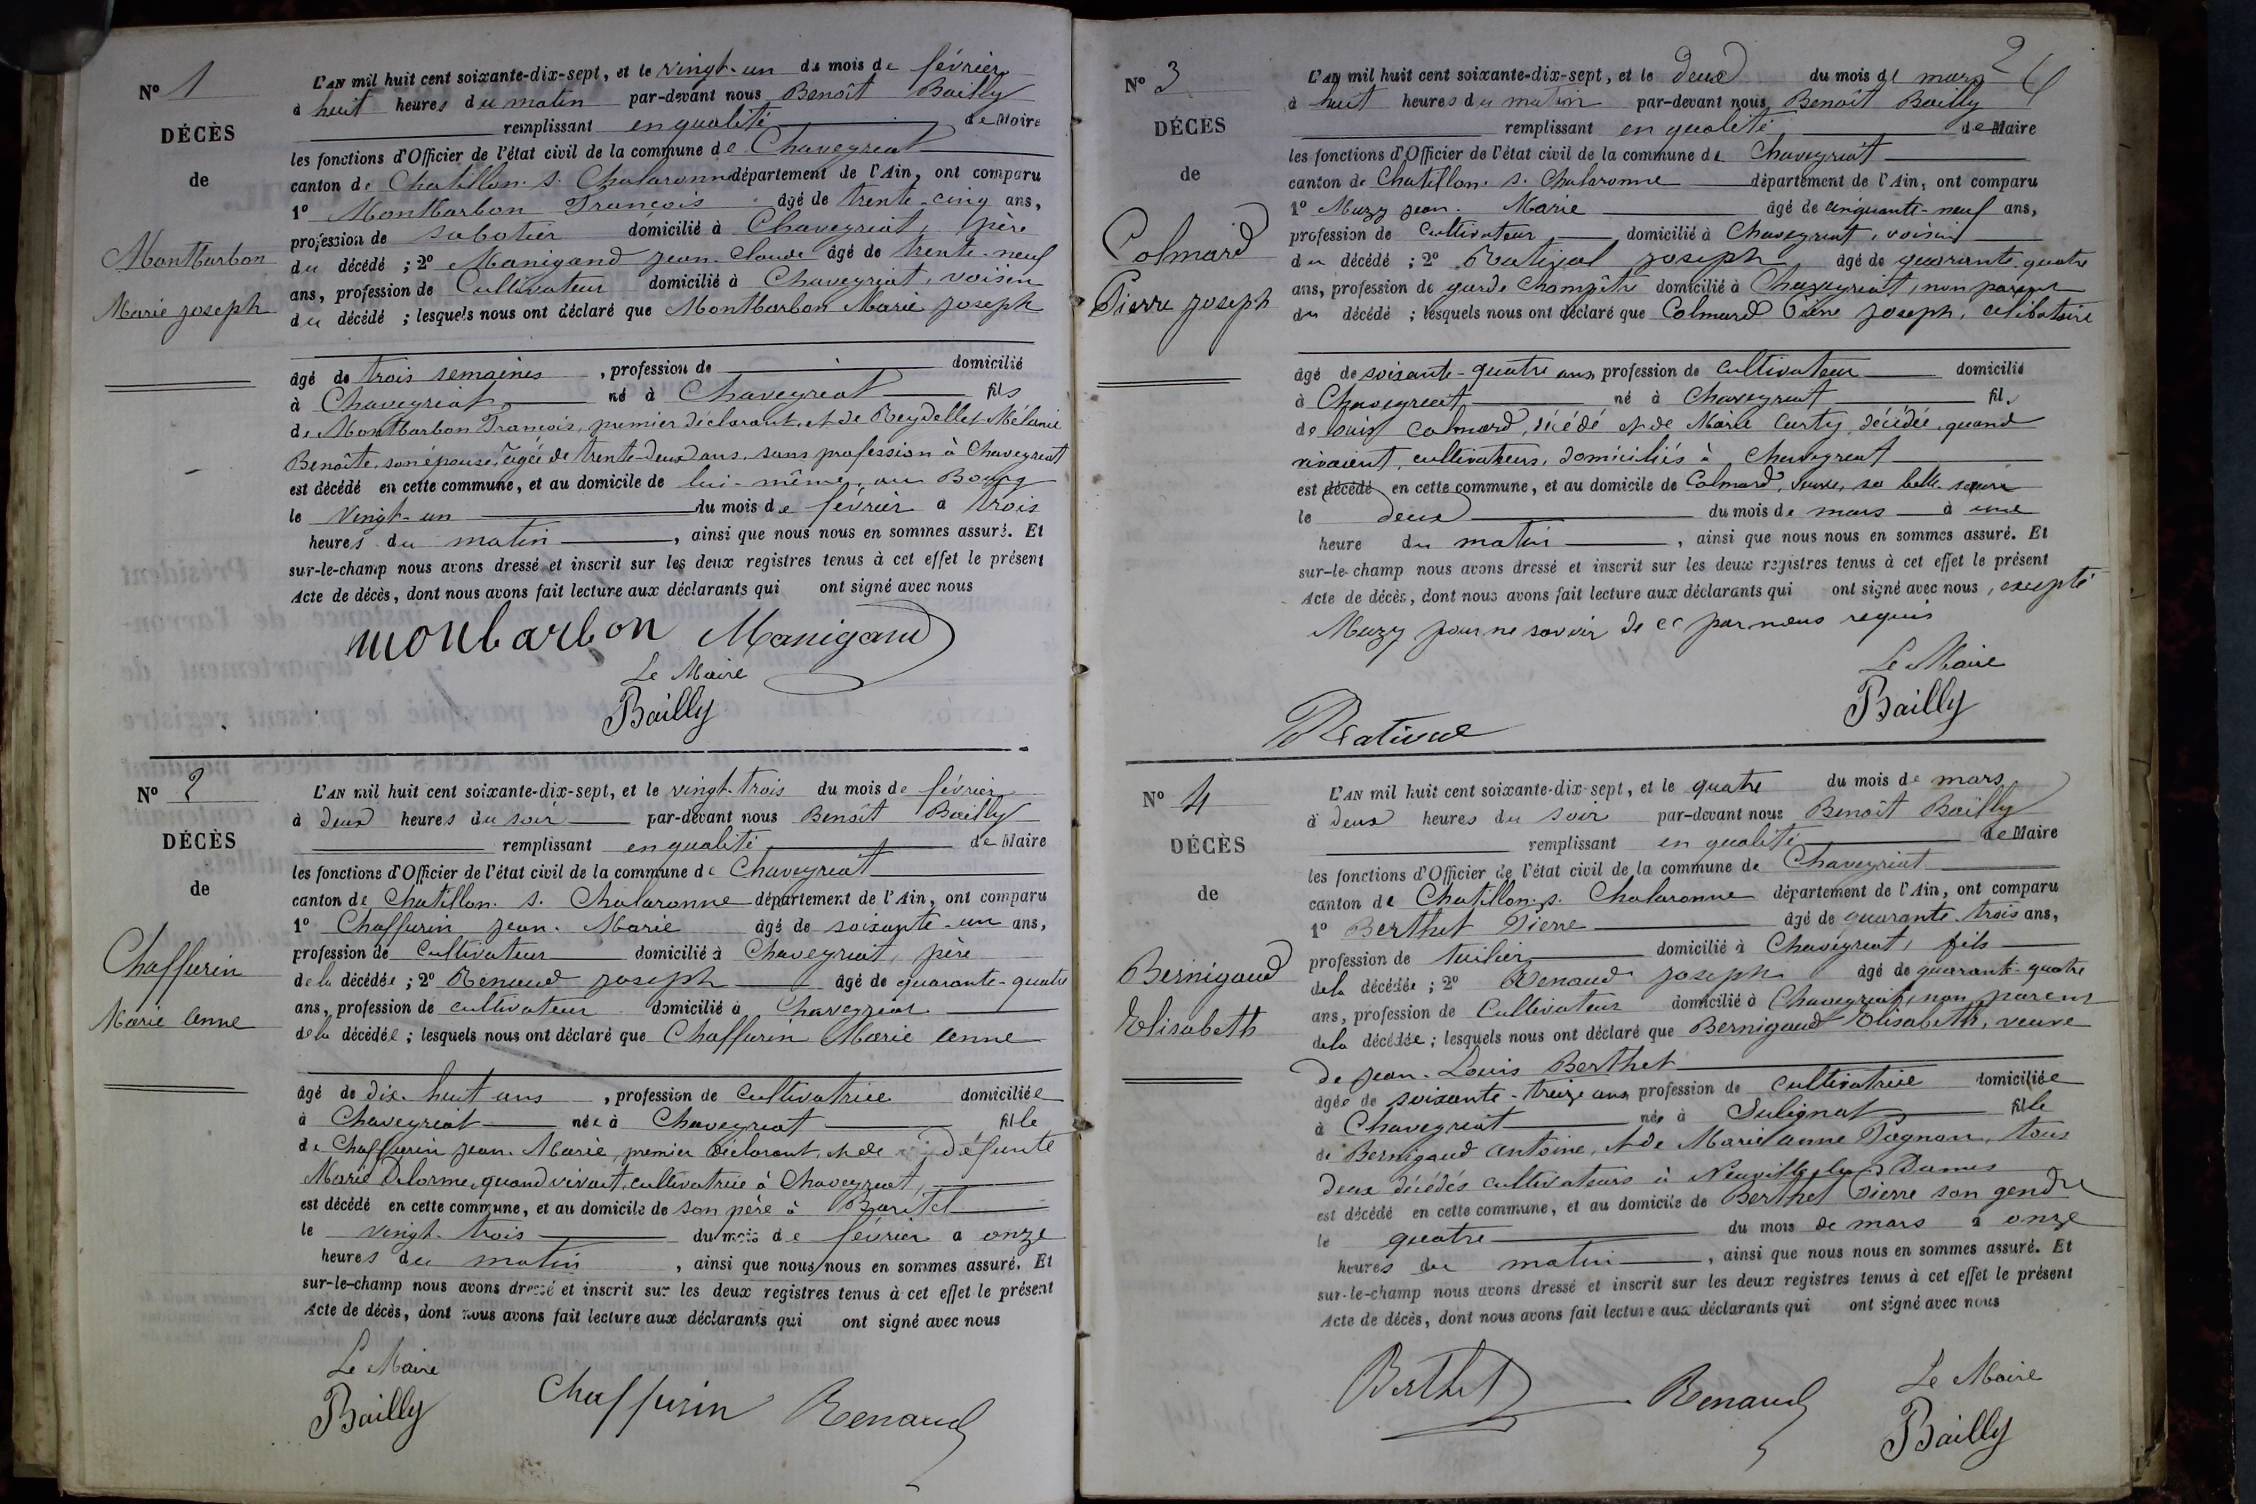 Nº 1
DÉCÈS
de
Montbarbon
Marie Joseph
L'AN mil huit cent soixante-dix-sept, et le vingt-un du mois de février
à huit heures du matin par-devant nous Benoît Bailly
remplissant en qualité de Maire
les fonctions d'Officier de l'état civil de la commune de Chaveyriat
canton de Chatillon-s-Chalaronne département de l'Ain, ont comparu
1º Montbarbon François âgé de trente-cinq ans,
profession de sabotier domicilié à Chaveyriat, père
du décédé ; 2º Manigand Jean-Claude âgé de trente-neuf
ans, profession de Cultivateur domicilié à Chaveyriat, voisin
du décédé ; lesquels nous ont déclaré que Montbarbon Marie Joseph
âgé de trois semaines, profession de domicilié
à Chaveyriat, né à Chaveyriat fils
de Montbarbon François, premier déclarant, et de Reydellet Mélanie
Benoîte, son épouse, âgée de trente-deux ans, sans profession à Chaveyriat
est décédé en cette commune, et au domicile de lui-même, au Bourg
le vingt-un du mois de février à trois
heures du matin, ainsi que nous nous en sommes assuré. Et
sur-le-champ nous avons dressé et inscrit sur les deux registres tenus à cet effet le présent
Acte de décès, dont nous avons fait lecture aux déclarants qui ont signé avec nous
monbarbon Manigand
Le Maire
Bailly
Nº 2
DÉCÈS
de
Chaffurin
Marie Anne
L'AN mil huit cent soixante-dix-sept, et le vingt-trois du mois de février
à deux heures du soir par-devant nous Benoît Bailly
remplissant en qualité de Maire
les fonctions d'Officier de l'état civil de la commune de Chaveyriat
canton de Chatillon-s-Chalaronne département de l'Ain, ont comparu
1º Chaffurin Jean-Marie âgé de soixante-un ans,
profession de cultivateur domicilié à Chaveyriat, père
de la décédée ; 2º Renaud Joseph âgé de quarante-quatre
ans, profession de cultivateur domicilié à Chaveyriat
de la décédée ; lesquels nous ont déclaré que Chaffurin Marie Anne
âgé de dix-huit ans, profession de cultivatrice domiciliée
à Chaveyriat née à Chaveyriat fille
de Chaffurin Jean-Marie, premier déclarant, et de défunte
Marie Delorme, quand vivait, cultivatrice à Chaveyriat,
est décédé en cette commune, et au domicile de son père à Baritel
le vingt-trois du mois de février à onze
heures du matin, ainsi que nous nous en sommes assuré. Et
sur-le-champ nous avons dressé et inscrit sur les deux registres tenus à cet effet le présent
Acte de décès, dont nous avons fait lecture aux déclarants qui ont signé avec nous
Le Maire
Bailly Chaffurin Renaud
2
Nº 3
DÉCÈS
de
Colmard
Pierre Joseph
L'AN mil huit cent soixante-dix-sept, et le deux du mois de mars
à huit heures du matin par-devant nous Benoît Bailly
remplissant en qualité de Maire
les fonctions d'Officier de l'état civil de la commune de Chaveyriat
canton de Chatillon-s-Chalaronne département de l'Ain, ont comparu
1º Muzy Jean-Marie âgé de cinquante-neuf ans,
profession de cultivateur domicilié à Chaveyriat, voisin
du décédé ; 2º Joseph âgé de quarante-quatre
ans, profession de garde champêtre domicilié à Chaveyriat, non parent
du décédé ; lesquels nous ont déclaré que Colmard Pierre Joseph, célibataire
âgé de soixante-quatre ans, profession de cultivateur domicilié
à Chaveyriat né à Chaveyriat fils
de Louis Colmard, décédé et de Marie Curty, décédée, quand
vivaient, cultivateurs, domiciliés à Chaveyriat
est décédé en cette commune, et au domicile de Colmard, veuve, sa belle-sœur
le deux du mois de mars à une
heure du matin, ainsi que nous nous en sommes assuré. Et
sur-le-champ nous avons dressé et inscrit sur les deux registres tenus à cet effet le présent
Acte de décès, dont nous avons fait lecture aux déclarants qui ont signé avec nous, excepté
Muzy pour ne savoir de ce par nous requis
Le Maire
Bailly
Nº 4
DÉCÈS
de
Bernigaud
Elisabeth
L'AN mil huit cent soixante-dix-sept, et le quatre du mois de mars
à deux heures du soir par-devant nous Benoît Bailly
remplissant en qualité de Maire
les fonctions d'Officier de l'état civil de la commune de Chaveyriat
canton de Chatillon-s-Chalaronne département de l'Ain, ont comparu
1º Berthet Pierre âgé de quarante-trois ans,
profession de tuilier domicilié à Chaveyriat, fils
de la décédée ; 2º Renaud Joseph âgé de quarante-quatre
ans, profession de Cultivateur domicilié à Chaveyriat, non parent
de la décédée ; lesquels nous ont déclaré que Bernigaud Elisabeth, veuve
de Jean-Louis Berthet
âgée de soixante-treize ans, profession de cultivatrice domiciliée
à Chaveyriat née à Sulignat fille
de Bernigaud Antoine, et de Marie Anne Pagnon, tous
deux décédés cultivateurs à Neuville les Dames
est décédé en cette commune, et au domicile de Berthet Pierre son gendre
le quatre du mois de mars à onze
heures du matin, ainsi que nous nous en sommes assuré. Et
sur-le-champ nous avons dressé et inscrit sur les deux registres tenus à cet effet le présent
Acte de décès, dont nous avons fait lecture aux déclarants qui ont signé avec nous
Berthet Renaud Le Maire
Bailly